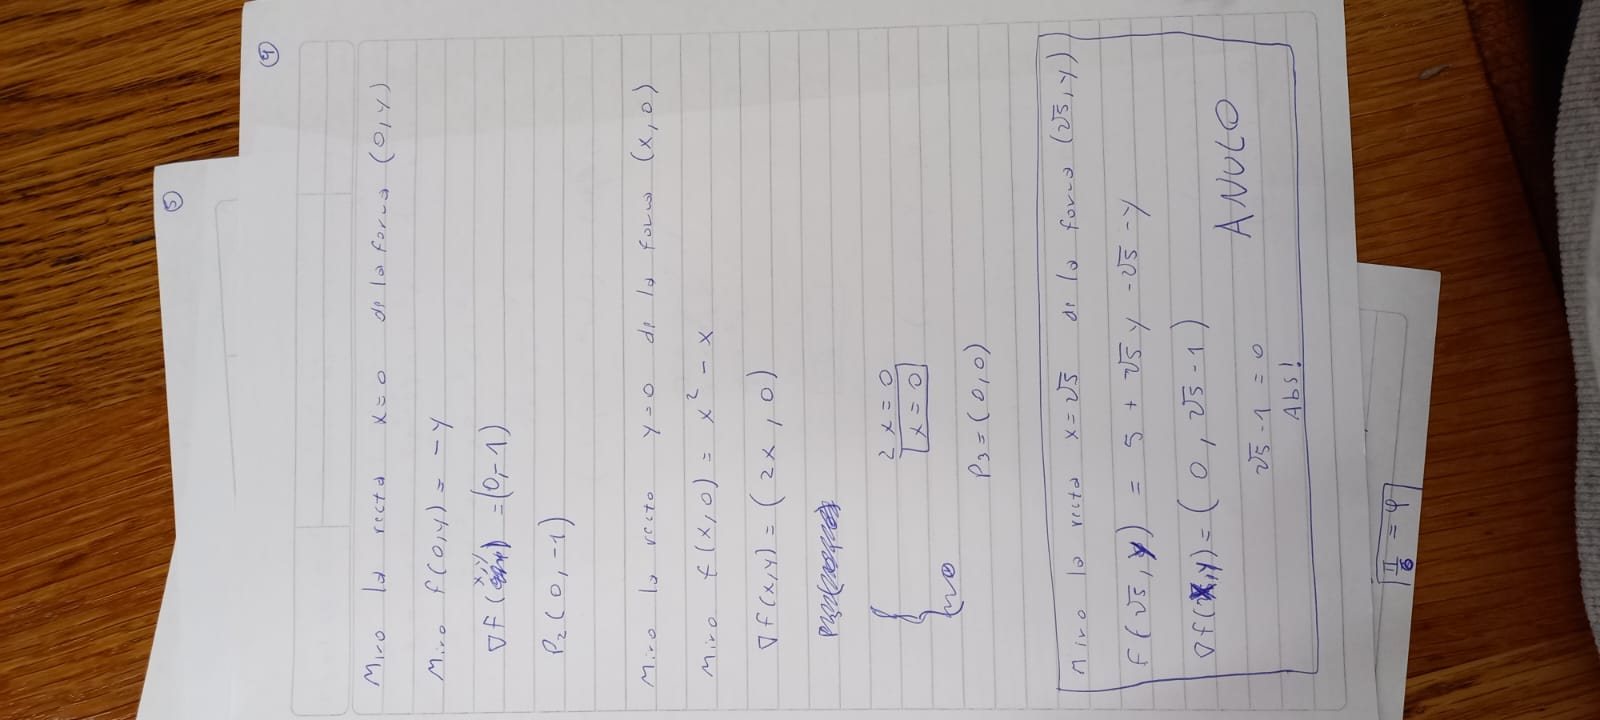 5
4
Miro la recta x=0 de la forma (0,y)
Miro f(0,y) = -y
∇f(x,y) = (0,-1)
P₂(0,-1)
Miro la recta y=0 de la forma (x,0)
Miro f(x,0) = x² - x
∇f(x,y) = (2x, 0)
2x=0
x=0
P₃=(0,0)
Miro la recta x=√5 de la forma (√5,y)
f(√5,y) = 5 + √5y -√5 -y
∇f(x,y)=(0, √5-1)
√5-1=0
ANULO
Abs!
π/6 = φ